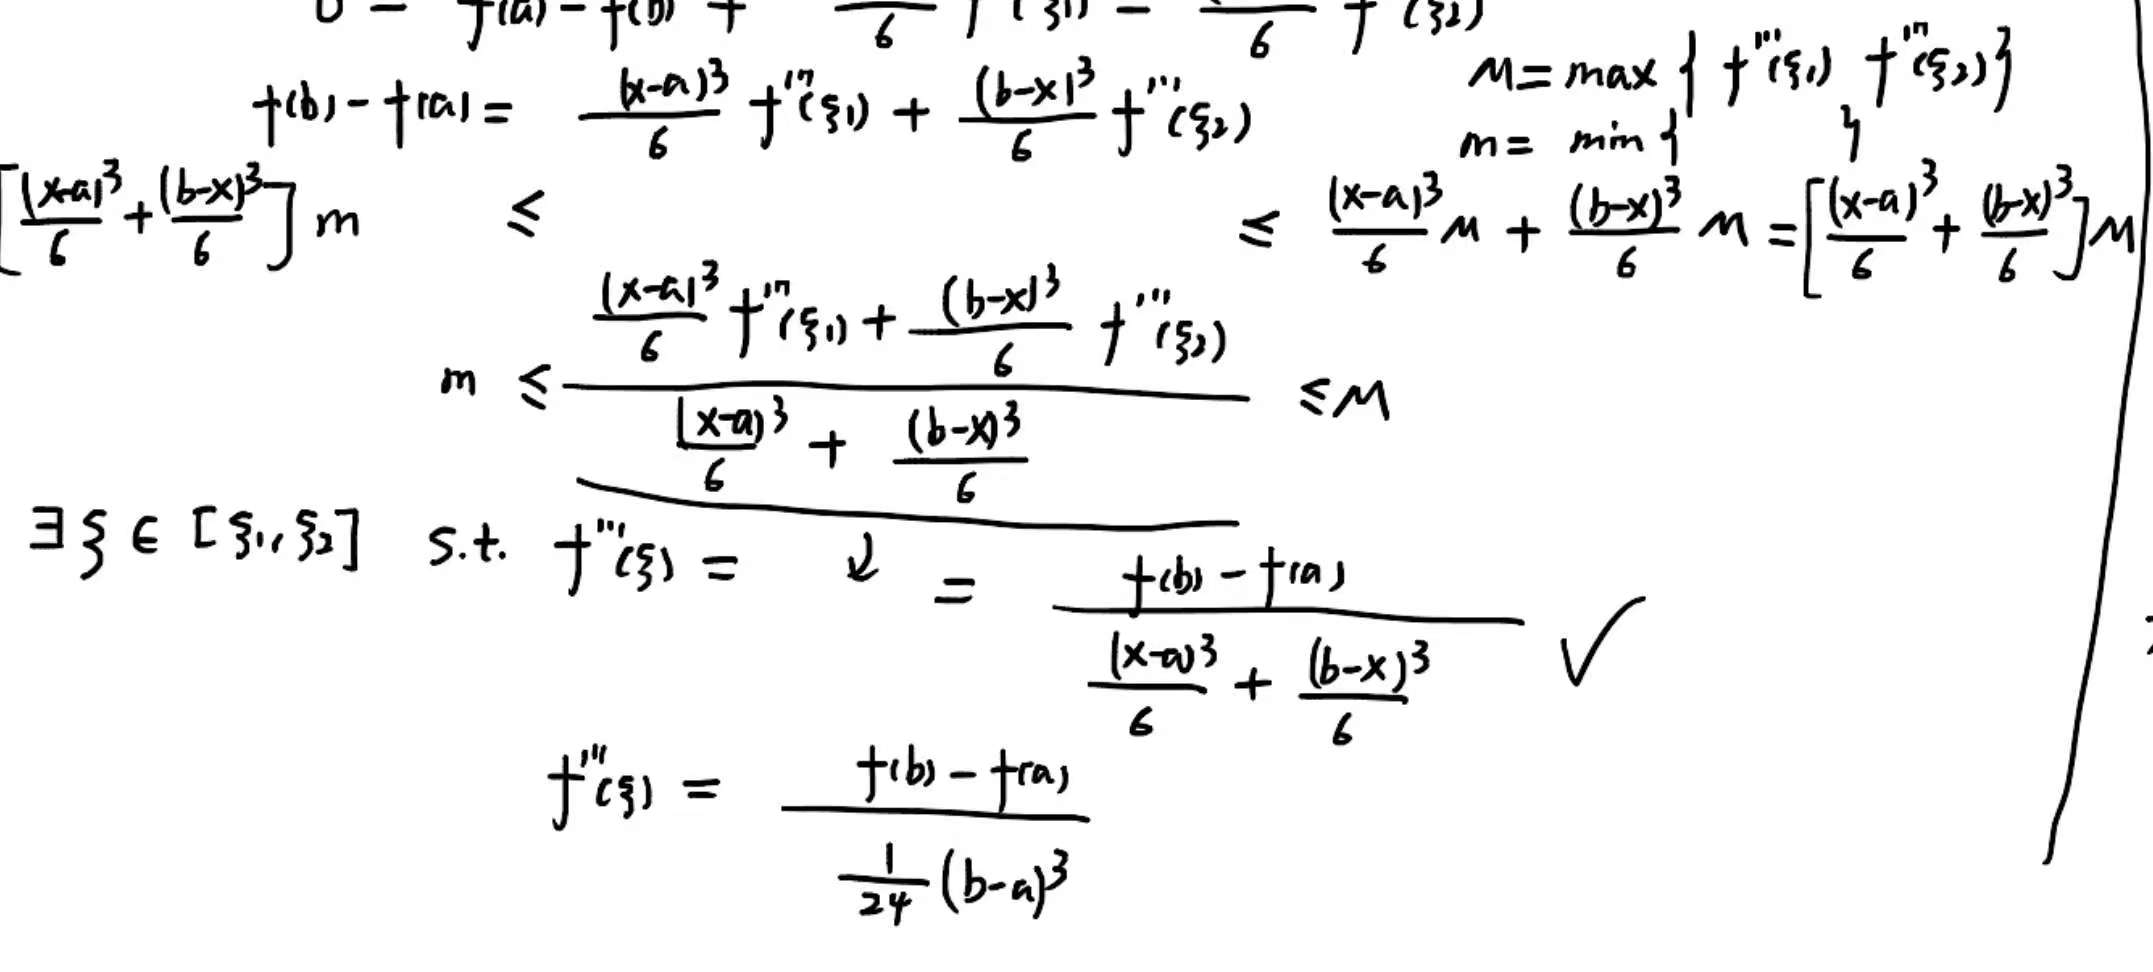 0 = f(a) - f(b) + —/6 f (ξ₁) - —/6 f (ξ₂)
f(b) - f(a) = (x-a)³/6 f'''(ξ₁) + (b-x)³/6 f'''(ξ₂)
M = max { f'''(ξ₁) f'''(ξ₂) }
m = min { }
[(x-a)³/6 + (b-x)³/6] m ≤ ≤ (x-a)³/6 M + (b-x)³/6 M = [(x-a)³/6 + (b-x)³/6] M
m ≤ ((x-a)³/6 f'''(ξ₁) + (b-x)³/6 f'''(ξ₂)) / ((x-a)³/6 + (b-x)³/6) ≤ M
∃ ξ ∈ [ξ₁, ξ₂] s.t. f'''(ξ) = ↓ = (f(b) - f(a)) / ((x-a)³/6 + (b-x)³/6) ✓
f'''(ξ) = (f(b) - f(a)) / (1/24 (b-a)³)